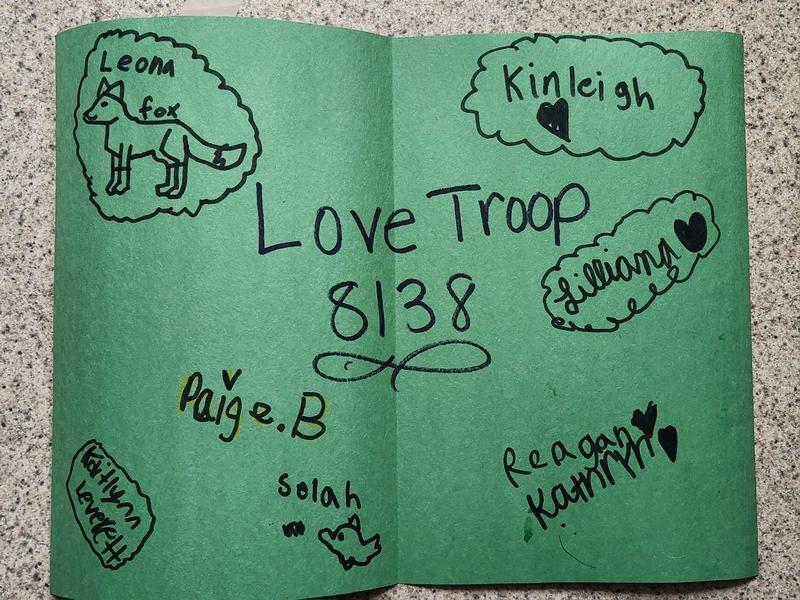 Leona
fox
Kinleigh
Love Troop
8138
Lilliana
Paige.B
Reagan
Kaitlynn
Leverett
Selah